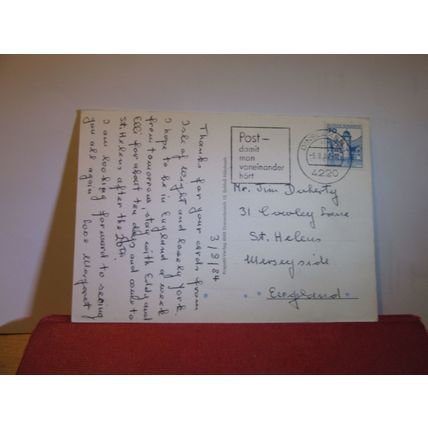 3/9/84
Thanks for your cards from
Isle of Wight and lovely York.
I hope to be in England a week
from tomorrow, stay with Eddy and
Elli for about ten days and come to
St. Helens after the 20th.
I am looking forward to seeing
you all again love Margaret
Post-
damit
man
voneinander
hört
4220
Mr. Jim Doherty
31 Cowley Lane
St. Helens
Merseyside
England